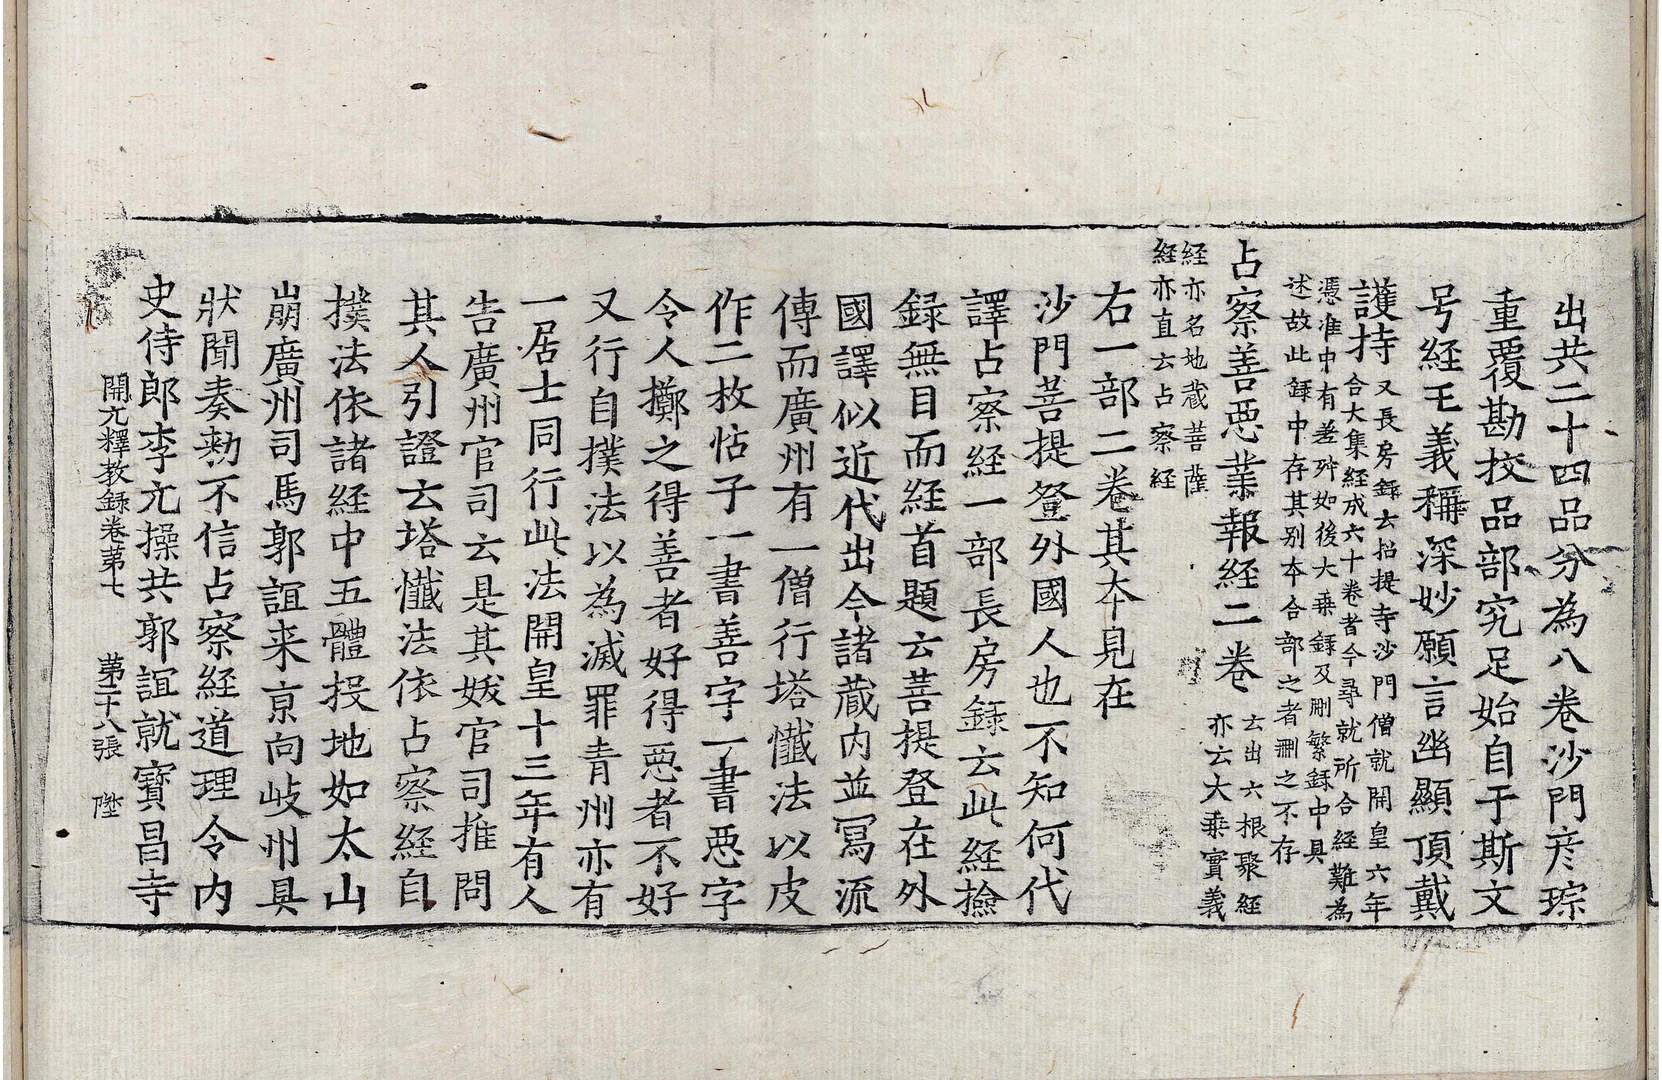 出共二十四品分為八卷沙門彦琮
重覆勘挍品部究足始自于斯文
号経王義稱深妙願言幽顯頂戴
護持又長房錄云招提寺沙門僧就開皇六年
合大集経成六十卷者今尋就所合経難為
憑准中有差舛如後大乗錄及刪繁錄中具
述故此錄中存其别本合部之者刪之不存
占察善惡業報経二卷云出六根聚経
亦云大乗實義
経亦名地蔵菩薩
経亦直云占察経
右一部二卷其本見在
沙門菩提登外國人也不知何代
譯占察経一部長房錄云此経撿
録無目而経首題云菩提登在外
國譯似近代出今諸蔵内並冩流
傳而廣州有一僧行塔懴法以皮
作二枚怗子一書善字一書惡字
令人擲之得善者好得惡者不好
又行自撲法以為滅罪青州亦有
一居士同行此法開皇十三年有人
告廣州官司云是其妖官司推問
其人引證云塔懴法依占察経自
撲法依諸経中五體投地如太山
崩廣州司馬郭誼来京向岐州具
狀聞奏勑不信占察経道理令内
史侍郎李元操共郭誼就寶昌寺
開元釋教錄卷第七　第二十八張　陞